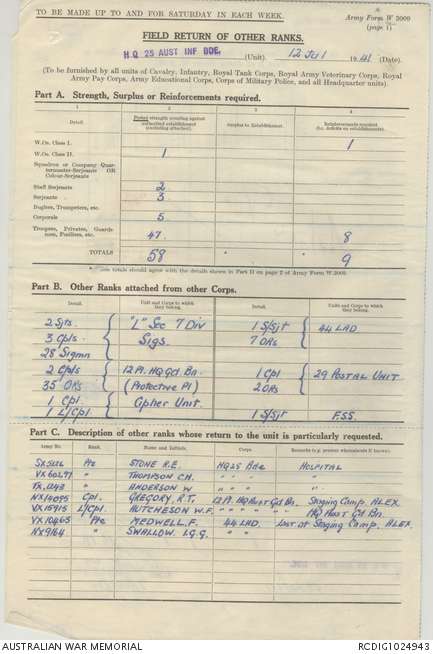 TO BE MADE UP TO AND FOR SATURDAY IN EACH WEEK.
Army Form W 3009
(page 1)
FIELD RETURN OF OTHER RANKS.
H.Q 25 AUST INF BDE. (Unit). 12 Jul 1941 (Date).
(To be furnished by all units of Cavalry, Infantry, Royal Tank Corps, Royal Army Veterinary Corps, Royal
Army Pay Corps, Army Educational Corps, Corps of Military Police, and all Headquarter units).
Part A. Strength, Surplus or Reinforcements required.
1 2 3 4
Detail Posted strength counting against authorized establishment (excluding attached) Surplus to Establishment. Reinforcements required
W.Os. Class I. 1
W.Os. Class II. 1
Squadron or Company Quarter-
termaster-Serjeants OR
Colour-Serjeants
Staff Serjeants 2
Serjeants 3
Buglers, Trumpeters, etc.
Corporals 5
Troopers, Privates, Guards-
men, Fusiliers, etc. 47 8
TOTALS 58 " 9
totals should agree with the details shown in Part II on page 2 of Army Form W.3009.
Part B. Other Ranks attached from other Corps.
Detail. Unit and Corps to which they belong. Detail. Units and Corps to which they belong.
2 Sjts "L" Sec 7 Div 1 S/Sjt 44 LAD
3 Cpls Sigs. 7 ORs
28 Sigmn
2 Cpls 12 Pl. HQ Gd Bn. 1 Cpl 29 POSTAL UNIT
35 ORs (Protective Pl) 2 ORs
1 Cpl Cipher Unit.
1 L/Cpl 1 S/Sjt F.S.S.
Part C. Description of other ranks whose return to the unit is particularly requested.
Army No. Rank. Name and Initials. Corps.
Pte STONE R.E. HQ 25 Bde HOSPITAL
VX60297 " THOMPSON C.H. " " " "
" ANDERSON W " " " "
NX14095 Cpl. GREGORY R.T. 12 Pl. HQ Aust Gd Bn. Staging Camp, ALEX
VX15915 L/Cpl HUTCHESON W.F. " " " HQ Aust Gd Bn
Pte MEDWELL F. 44 LAD. Last at Staging Camp, ALEX.
NX9164 " SWALLOW L.G.G. " " " " "
AUSTRALIAN WAR MEMORIAL
RCDIG1024943